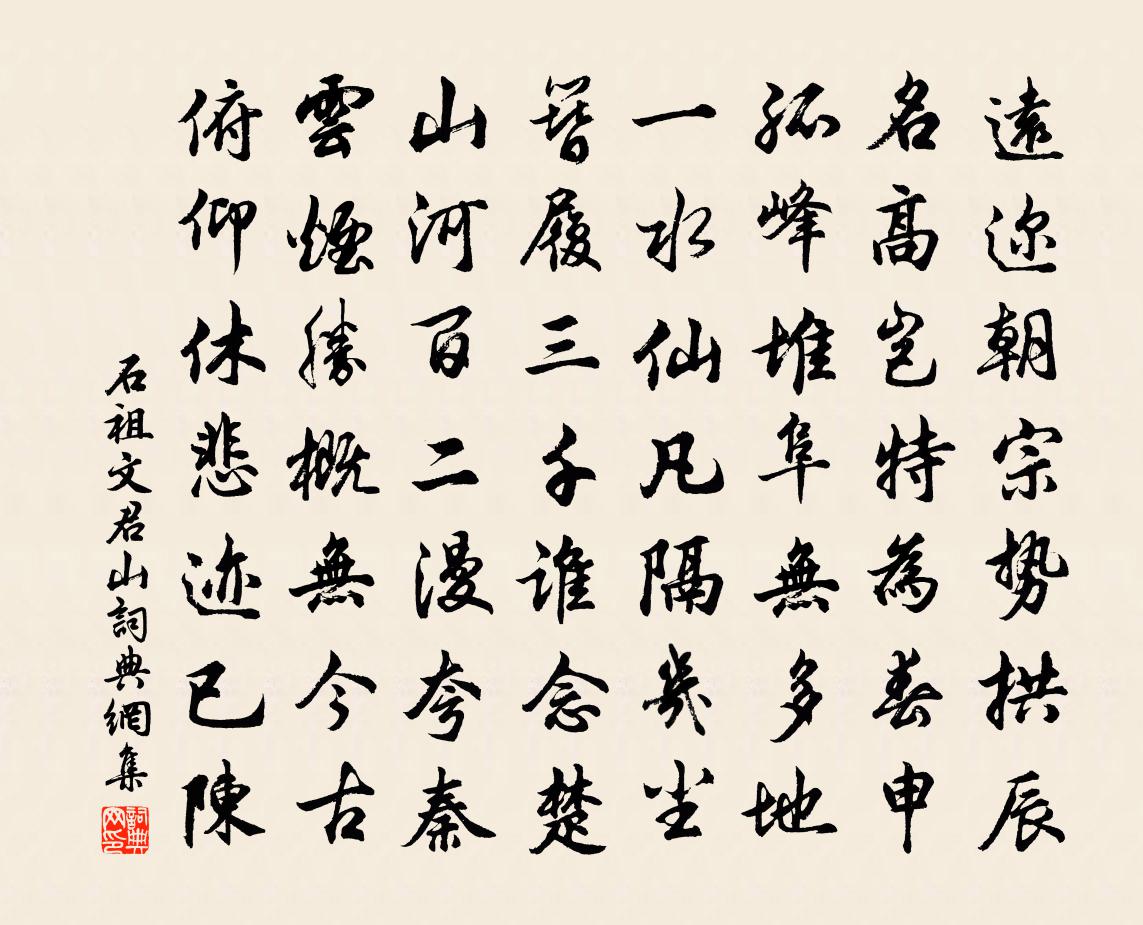 遠迩朝宗勢拱辰
名高岂特為春申
孤峰堆阜無多地
一水仙凡隔幾尘
簪履三千誰念楚
山河百二漫夸秦
雲煙勝概無今古
俯仰休悲迹已陳
石祖文君山詞典網集
詞典网印